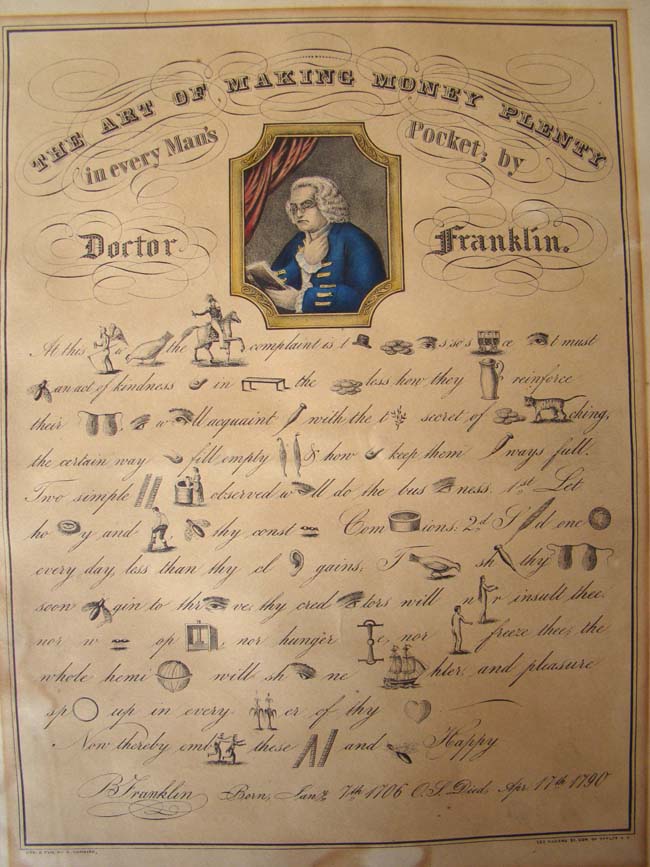 THE ART OF MAKING MONEY PLENTY
in every Man's Pocket; by
Doctor Franklin.
At this the complaint is t s so s ce t must
an act of kindness in the less how they reinforce
their w ll acquaint with the t secret of ching,
the certain way fill empty & how keep them ways full.
Two simple observed w ll do the bus ness. 1st. Let
ho y and thy const Com ions: 2d. S d one
every day, less than thy cl gains; T sh thy
soon gin to thr ve; thy cred tors will n r insult thee.
nor w op , nor hunger e, nor freeze thee; the
whole hemi will sh ne hter, and pleasure
sp up in every er of thy
Now thereby emb these and Happy
B Franklin Born, Jany. 7th 1706 O.S. Died, Apr. 17th 1790